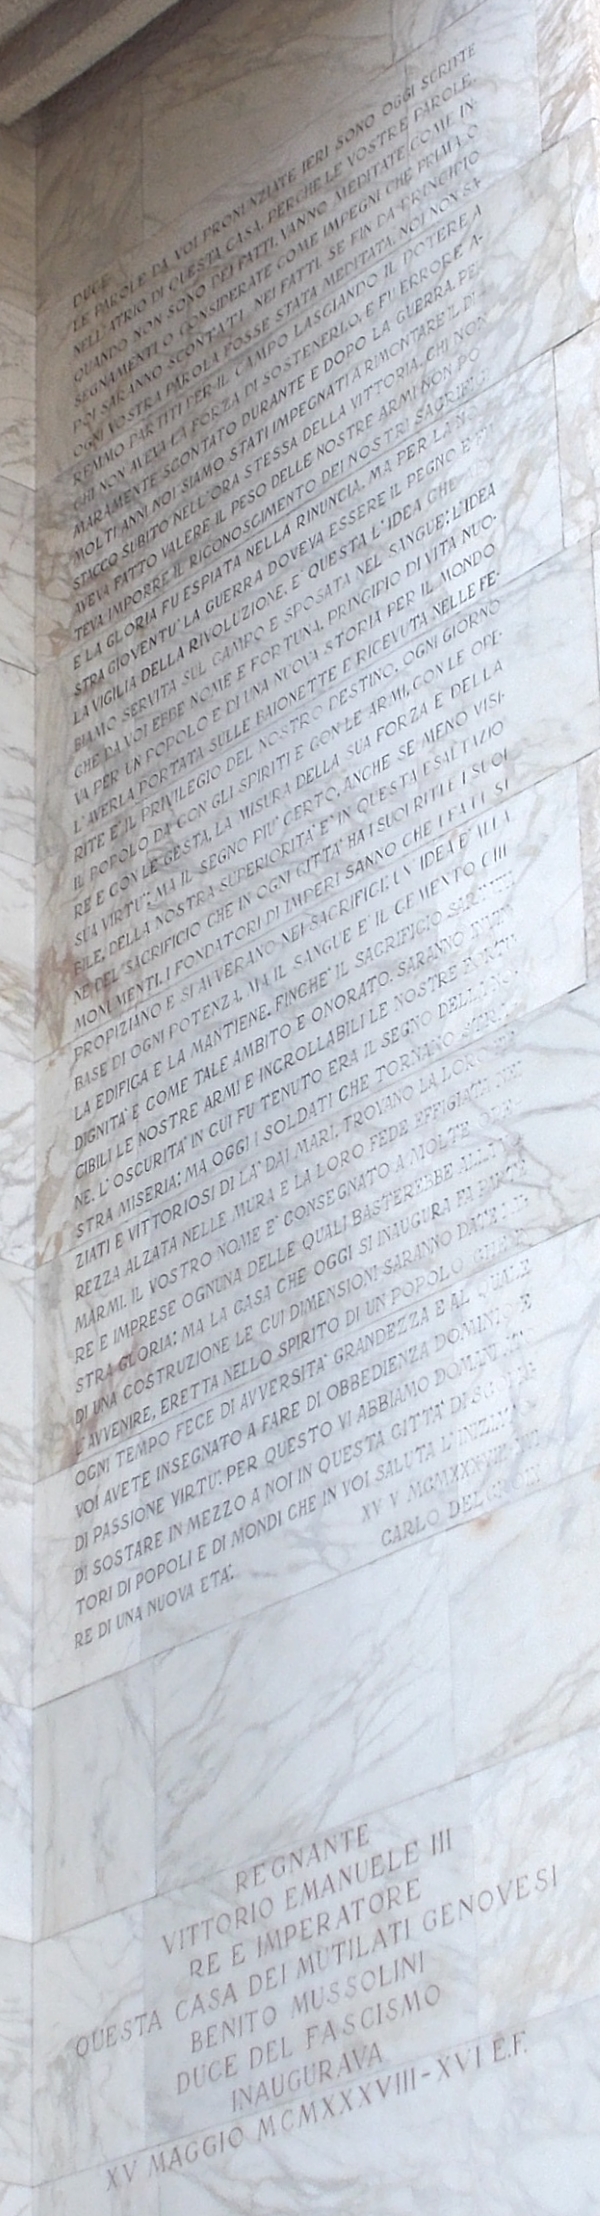 DUCE
LE PAROLE DA VOI PRONUNZIATE IERI SONO OGGI SCRITTE
NELL'ATRIO DI QUESTA CASA, PERCHE LE VOSTRE PAROLE,
QUANDO NON SONO DEI FATTI, VANNO MEDITATE COME IN-
SEGNAMENTI O CONSIDERATE COME IMPEGNI CHE PRIMA O
POI SARANNO SCONTATI NEI FATTI. SE FIN DA PRINCIPIO
OGNI VOSTRA PAROLA FOSSE STATA MEDITATA, NOI NON SA-
REMMO PARTITI PER IL CAMPO LASCIANDO IL POTERE A
CHI NON AVEVA LA FORZA DI SOSTENERLO, E FU ERRORE A-
MARAMENTE SCONTATO DURANTE E DOPO LA GUERRA. PER
MOLTI ANNI NOI SIAMO STATI IMPEGNATI A RIMONTARE IL DI-
STACCO SUBITO NELL'ORA STESSA DELLA VITTORIA. CHI NON
AVEVA FATTO VALERE IL PESO DELLE NOSTRE ARMI NON PO-
TEVA IMPORRE IL RICONOSCIMENTO DEI NOSTRI SACRIFICI
E LA GLORIA FU ESPIATA NELLA RINUNCIA. MA PER LA NO-
STRA GIOVENTU' LA GUERRA DOVEVA ESSERE IL PEGNO E
LA VIGILIA DELLA RIVOLUZIONE. E' QUESTA L'IDEA CHE AB-
BIAMO SERVITA SUL CAMPO E SPOSATA NEL SANGUE: L'IDEA
CHE DA VOI EBBE NOME E FORTUNA, PRINCIPIO DI VITA NUO-
VA PER UN POPOLO E DI UNA NUOVA STORIA PER IL MONDO
L'AVERLA PORTATA SULLE BAIONETTE E RICEVUTA NELLE FE-
RITE E' IL PRIVILEGIO DEL NOSTRO DESTINO. OGNI GIORNO
IL POPOLO DA' CON GLI SPIRITI E CON LE ARMI, CON LE OPE-
RE E CON LE GESTA, LA MISURA DELLA SUA FORZA E DELLA
SUA VIRTU'; MA IL SEGNO PIU' CERTO, ANCHE SE MENO VISI-
BILE, DELLA NOSTRA SUPERIORITA' E' IN QUESTA ESALTAZIO
NE DEL SACRIFICIO CHE IN OGNI CITTA' HA I SUOI RITI E I SUOI
MONUMENTI. I FONDATORI DI IMPERI SANNO CHE I FATI SI
PROPIZIANO E SI AVVERANO NEI SACRIFICI; UN'IDEA E' ALLA
BASE DI OGNI POTENZA, MA IL SANGUE E' IL CEMENTO CHE
LA EDIFICA E LA MANTIENE. FINCHE' IL SACRIFICIO SARA'
DIGNITA' E COME TALE AMBITO E ONORATO, SARANNO INVIN-
CIBILI LE NOSTRE ARMI E INCROLLABILI LE NOSTRE FORTU-
NE. L'OSCURITA' IN CUI FU TENUTO ERA IL SEGNO DELLA NO-
STRA MISERIA; MA OGGI I SOLDATI CHE TORNANO STRA-
ZIATI E VITTORIOSI DI LA' DAI MARI, TROVANO LA LORO
REZZA ALZATA NELLE MURA E LA LORO FEDE EFFIGIATA NEI
MARMI. IL VOSTRO NOME E' CONSEGNATO A MOLTE OPE-
RE E IMPRESE OGNUNA DELLE QUALI BASTEREBBE ALLA VO-
STRA GLORIA; MA LA CASA CHE OGGI SI INAUGURA FA PARTE
DI UNA COSTRUZIONE LE CUI DIMENSIONI SARANNO DATE DAL-
L'AVVENIRE, ERETTA NELLO SPIRITO DI UN POPOLO CHE IN
OGNI TEMPO FECE DI AVVERSITA' GRANDEZZA E AL QUALE
VOI AVETE INSEGNATO A FARE DI OBBEDIENZA DOMINIO E
DI PASSIONE VIRTU'. PER QUESTO VI ABBIAMO DOMANDATO
DI SOSTARE IN MEZZO A NOI IN QUESTA CITTA' DI
TORI DI POPOLI E DI MONDI CHE IN VOI SALUTA L'INIZIATO-
RE DI UNA NUOVA ETA'.
XV V MCMXXXVIII
CARLO DELCROIX
REGNANTE
VITTORIO EMANUELE III
RE E IMPERATORE
QUESTA CASA DEI MUTILATI GENOVESI
BENITO MUSSOLINI
DUCE DEL FASCISMO
INAUGURAVA
XV MAGGIO MCMXXXVIII-XVI E.F.